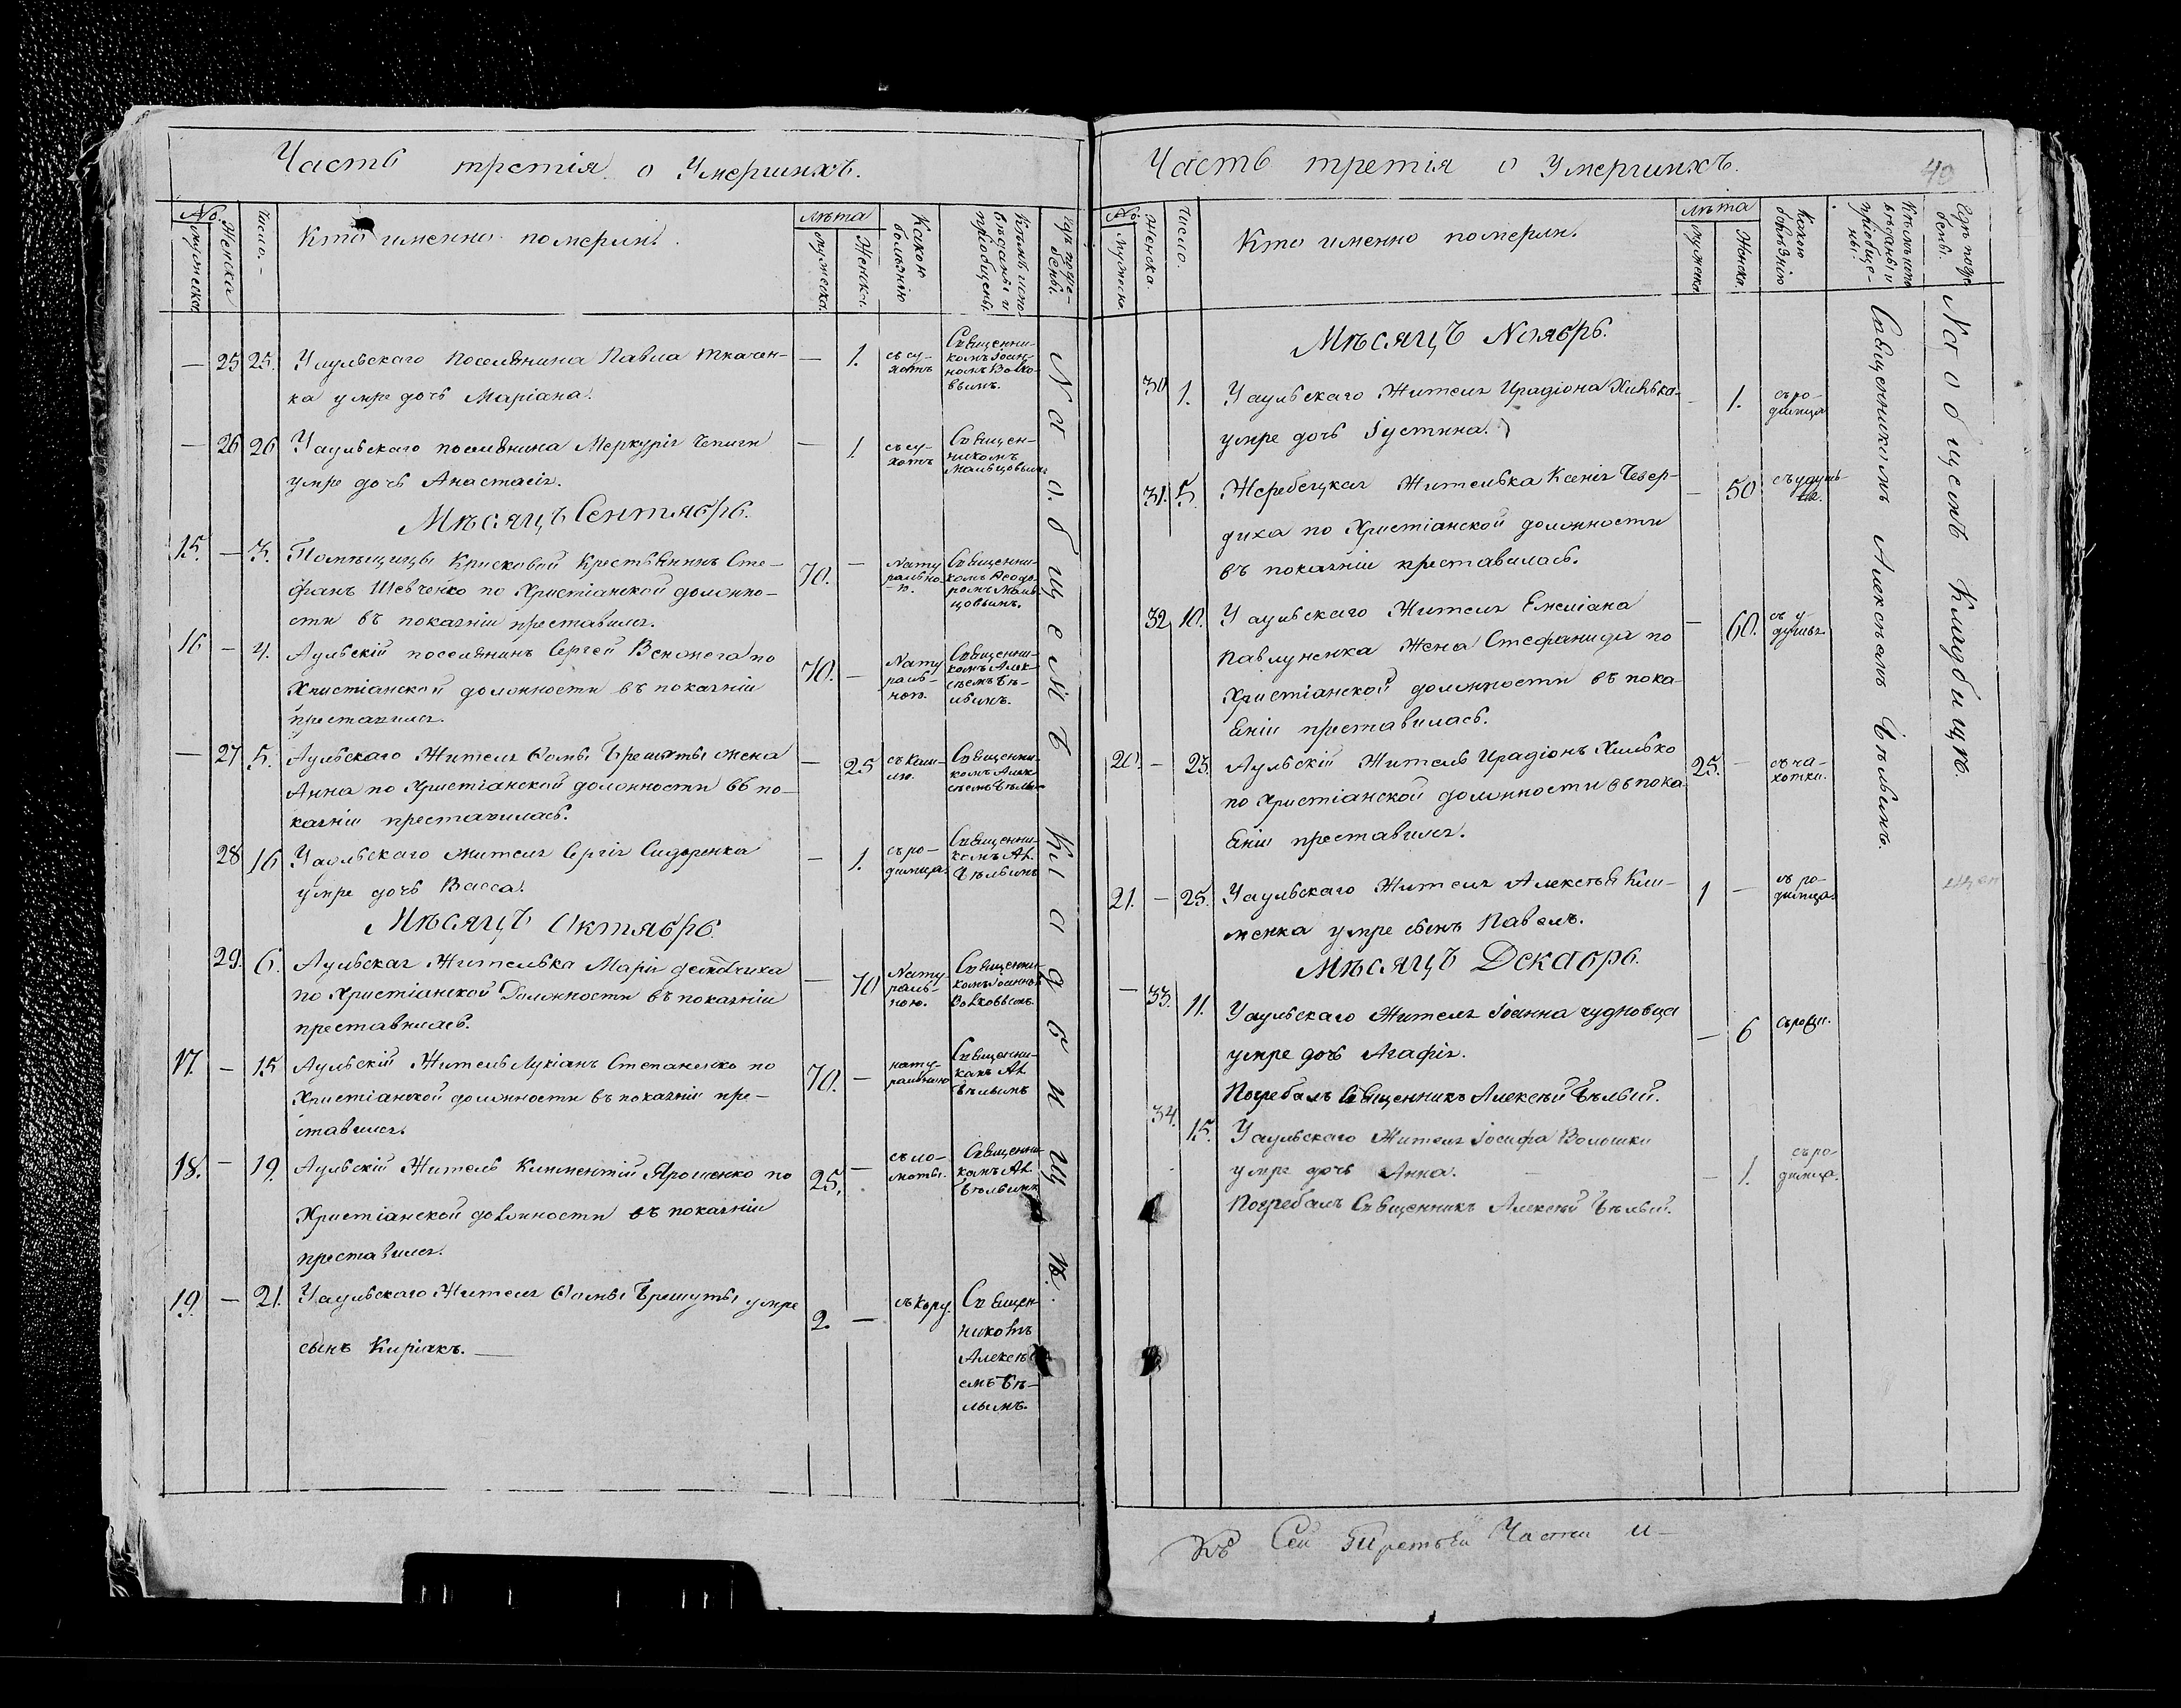 Часть третія о Умершихъ.
No. Мужеска Женска Число.
Кто именно померли.
лѣта
мужеска. Женска.
Какою болѣзнію
Кѣмъ исповѣданы и пріобщены.
Гдѣ погребены.
— 25 25. Уаульскаго поселянина Павла Ткачен- — 1. съ су-
ка умре дочь Маріана. хотъ
Священни-
комъ Іоан-
номъ Волко-
вымъ.
— 26 26 Уаульскаго поселянина Меркурія Чепиги — 1. съ су-
умре дочь Анастасія. хотъ
Священ-
никомъ
Мальцовымъ
Мѣсяцъ Сентябрь.
15. — 3. Помѣщицы Крисковой Крестьянинъ Сте- 70. — Nату
фанъ Шевченко по Христіанской должно- рально-
сти въ покаяніи преставился. ю.
Священни-
комъ Ѳеодо-
ромъ Маль-
цовымъ.
16 — 4. Аульскій поселянинъ Сергей по 70. — Nату
Христіанской должности въ покаяніи раль-
преставился. ною.
Священни-
комъ Алек-
сѣемъ Бѣ-
лымъ.
— 27 5. Аульскаго Жителя Ѳомы Брешуты жена — 25 съ каш-
Анна по Христіанской должности въ по- лю.
каяніи преставилась.
Священни-
комъ Алек-
сѣемъ Бѣлым
28 16 Уаульскаго жителя Сергія Сидоренка — 1. съ ро-
умре дочь Васса. димца.
Священни-
комъ Ал.
Бѣлымъ
Мѣсяцъ Октябрь.
29. 6. Аульская Жителька Марія — 70 Nату
по Христіанской Должности въ покаяніи раль-
преставилась. ною.
Священни-
комъ Іоанном
Волковымъ
17. — 15 Аульскій Житель Лукіанъ Степаненко по 70. — нату-
Христіанской должности въ покаяніи пре- ральною
ставился.
Священни-
комъ Ал.
Бѣлымъ
18. — 19. Аульскій Житель Климентій Ярошенко по 25. — съ ло-
Христіанской должности въ покаяніи моты.
преставился.
Священни-
комъ Ал.
Бѣлымъ
19. — 21. Уаульскаго Жителя Ѳомы Брешуты умре 2. — съ кору.
сынъ Киріякъ.
Священ-
никомъ
Алексѣ-
емъ Бѣ-
лымъ.
На общемъ Кладбищѣ.
Часть третія о Умершихъ.
40
No. Мужеска Женска. Число.
Кто именно померли.
лѣта
мужеска Женска.
Какою болѣзнію
Кѣмъ испо вѣданы и пріобще- ны.
Гдѣ погре бены.
Мѣсяцъ Ноябрь.
30 1. Уаульскаго Жителя Ирадіона Хилька — 1. съ ро-
умре дочь Іустина. димца
31. 5. Жеребецкая Жителька Ксенія Чевер- — 50 съ
диха по Христіанской должности
въ покаяніи преставилась.
32 10. Уаульскаго Жителя Емеліана — 60. съ у-
Павлуненка Жена Стефанида по душья
Христіанской должности въ пока-
яніи преставилась.
20. — 23. Аульскій Житель Ирадіонъ Хилько 25. — съ ча-
по Христіанской должности въ пока- хотки.
яніи преставился.
21. — 25. Уаульскаго Жителя Алексѣя Кли- 1 — съ ро-
менка умре сынъ Павелъ. димца.
Мѣсяцъ Декабрь.
— 33. 11. Уаульскаго Жителя Іоанна Чудновца — 6
умре дочь Агафія.
Погребалъ Священникъ Алексѣй Бѣлый.
34. 15. Уаульскаго Жителя Іосифа Волошки — 1. съ ро-
умре дочь Анна. димца.
Погребалъ Священникъ Алексѣй Бѣлый.
Священникомъ Алексѣемъ Бѣлымъ.
На общемъ Кладбищѣ.
Къ Сей Третьей Части и-